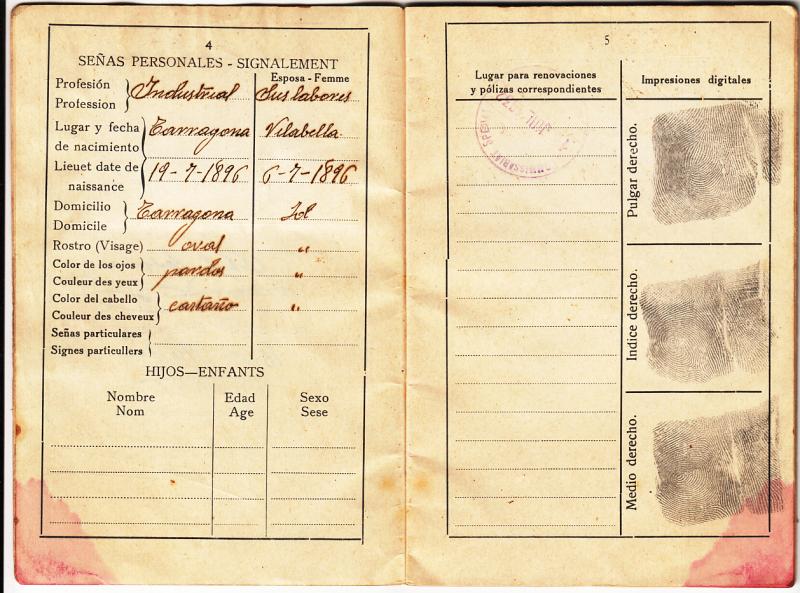 4
SEÑAS PERSONALES - SIGNALEMENT
Esposa - Femme
Profesión
Profession
Industrial
Sus labores
Lugar y fecha
de nacimiento
Tarragona
Vilabella
Lieuet date de
naissance
19-7-1896
6-7-1896
Domicilio
Domicile
Tarragona
Id
Rostro (Visage)
oval
"
Color de los ojos
Couleur des yeux
pardos
"
Color del cabello
Couleur des cheveux
castaño
"
Señas particulares
Signes particullers
HIJOS—ENFANTS
Nombre
Nom
Edad
Age
Sexo
Sese
5
Lugar para renovaciones
y pólizas correspondientes
Impresiones digitales
Pulgar derecho.
Indice derecho.
Medio derecho.